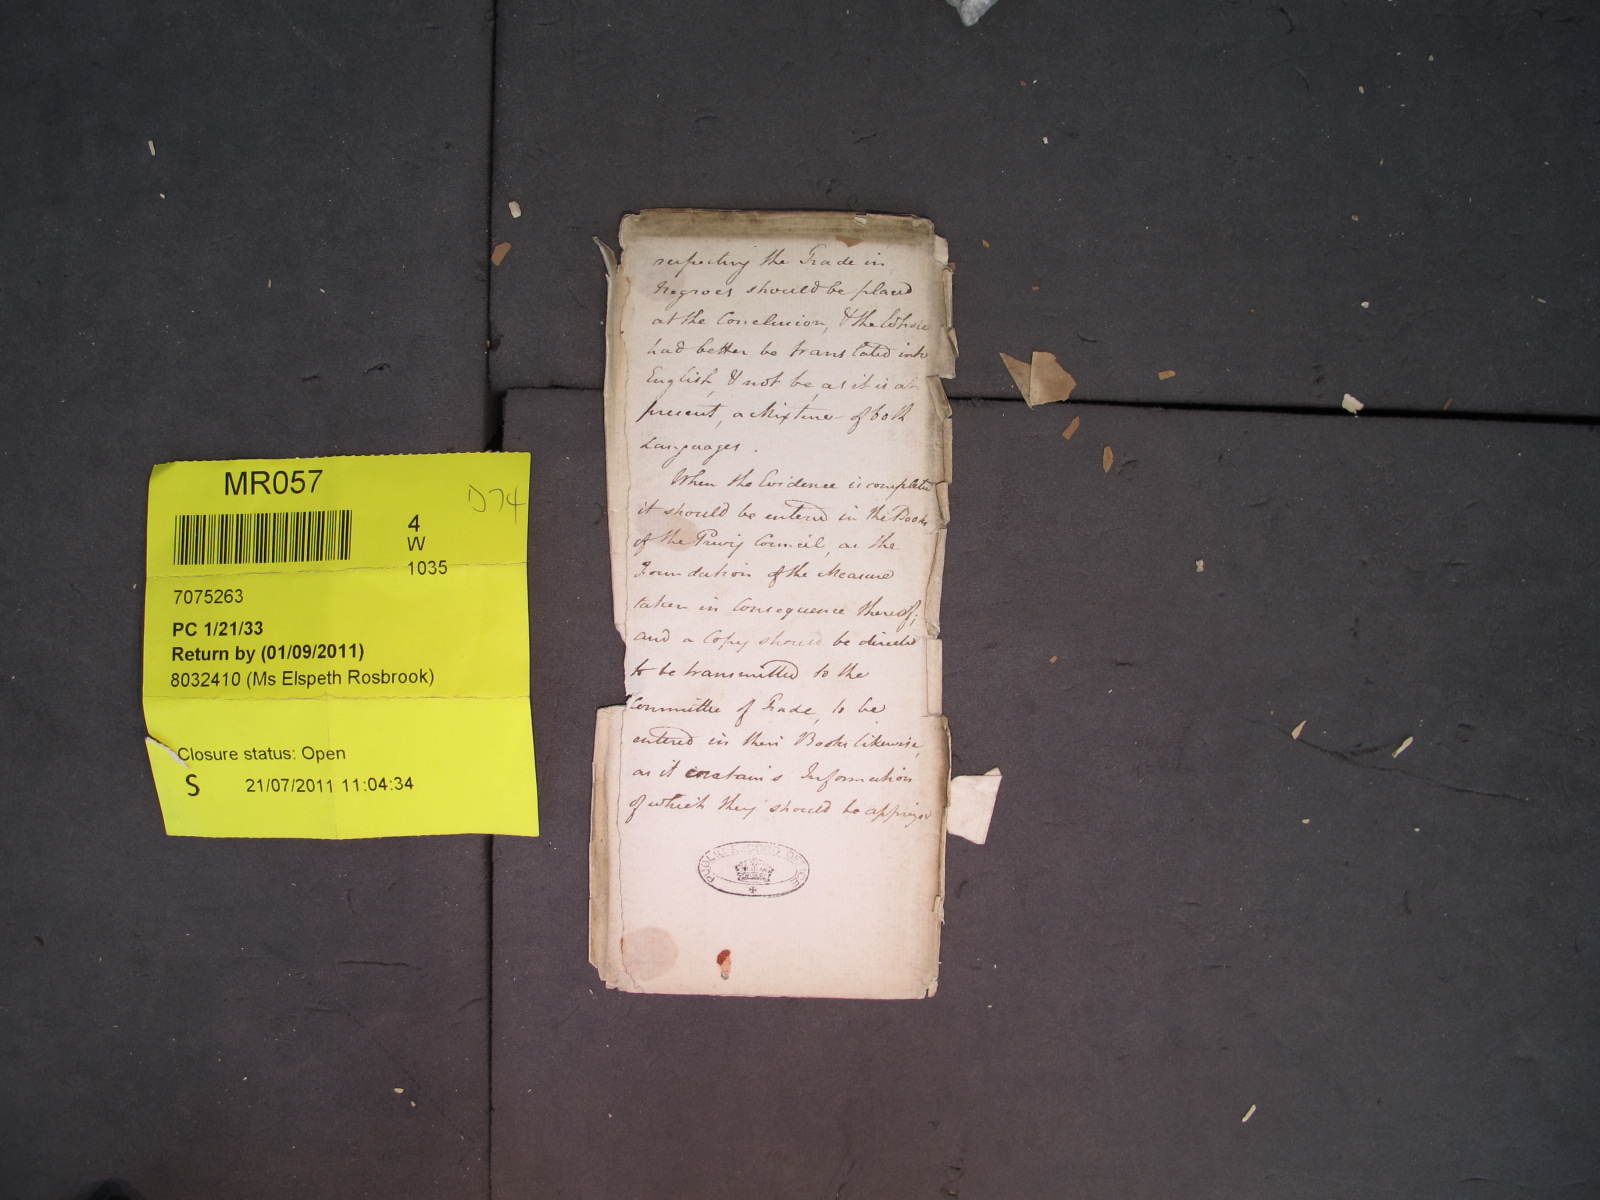 MR057
D74
4
W
1035
7075263
PC 1/21/33
Return by (01/09/2011)
8032410 (Ms Elspeth Rosbrook)
Closure status: Open
S 21/07/2011 11:04:34
respecting the Trade in
Negroes should be placed
at the Conclusion, & the Whole
had better be translated into
English, & not be as it is at
present, a Mixture of both
Languages.
When the Evidence is completed
it should be entered in the Books
of the Privy Council, as the
Foundation of the Measure
taken in Consequence thereof;
and a Copy should be directed
to be transmitted to the
Committee of Trade, to be
entered in their Books likewise,
as it contains Information
of which they should be apprized
PUBLIC RECORD OFFICE